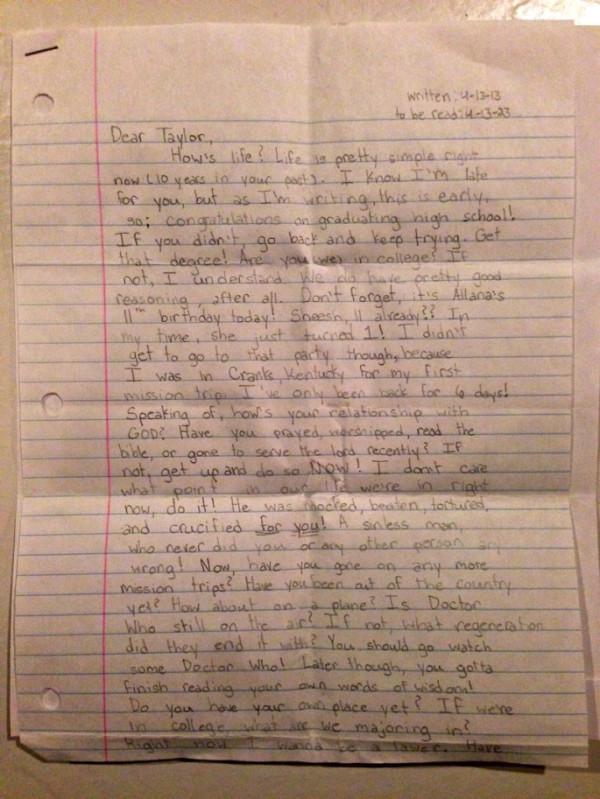 written: 4-13-13
to be read: 4-13-23
Dear Taylor,
How's life? Life is pretty simple right
now (10 years in your past). I know I'm late
for you, but as I'm writing this is early,
so; congratulations on graduating high school!
If you didn't, go back and keep trying. Get
that degree! Are you (we) in college? If
not, I understand. We do have pretty good
reasoning, after all. Don't forget, it's Allana's
11th birthday today! Sheesh, 11 already?? In
my time, she just turned 1! I didn't
get to go to that party though, because
I was in Cranks, Kentucky for my first
mission trip. I've only been back for 6 days!
Speaking of, how's your relationship with
GOD? Have you prayed, worshipped, read the
bible, or gone to serve the lord recently? If
not, get up and do so NOW! I don't care
what point in our life we're in right
now, do it! He was mocked, beaten, tortured,
and crucified for you! A sinless man,
who never did you or any other person any
wrong! Now, have you gone on any more
mission trips? Have you been out of the country
yet? How about on a plane? Is Doctor
Who still on the air? If not, what regeneration
did they end it with? You should go watch
some Doctor Who! Later though, you gotta
finish reading your own words of wisdom!
Do you have your own place yet? If we're
in college, what are we majoring in?
Right now I wanna be a lawer. Have